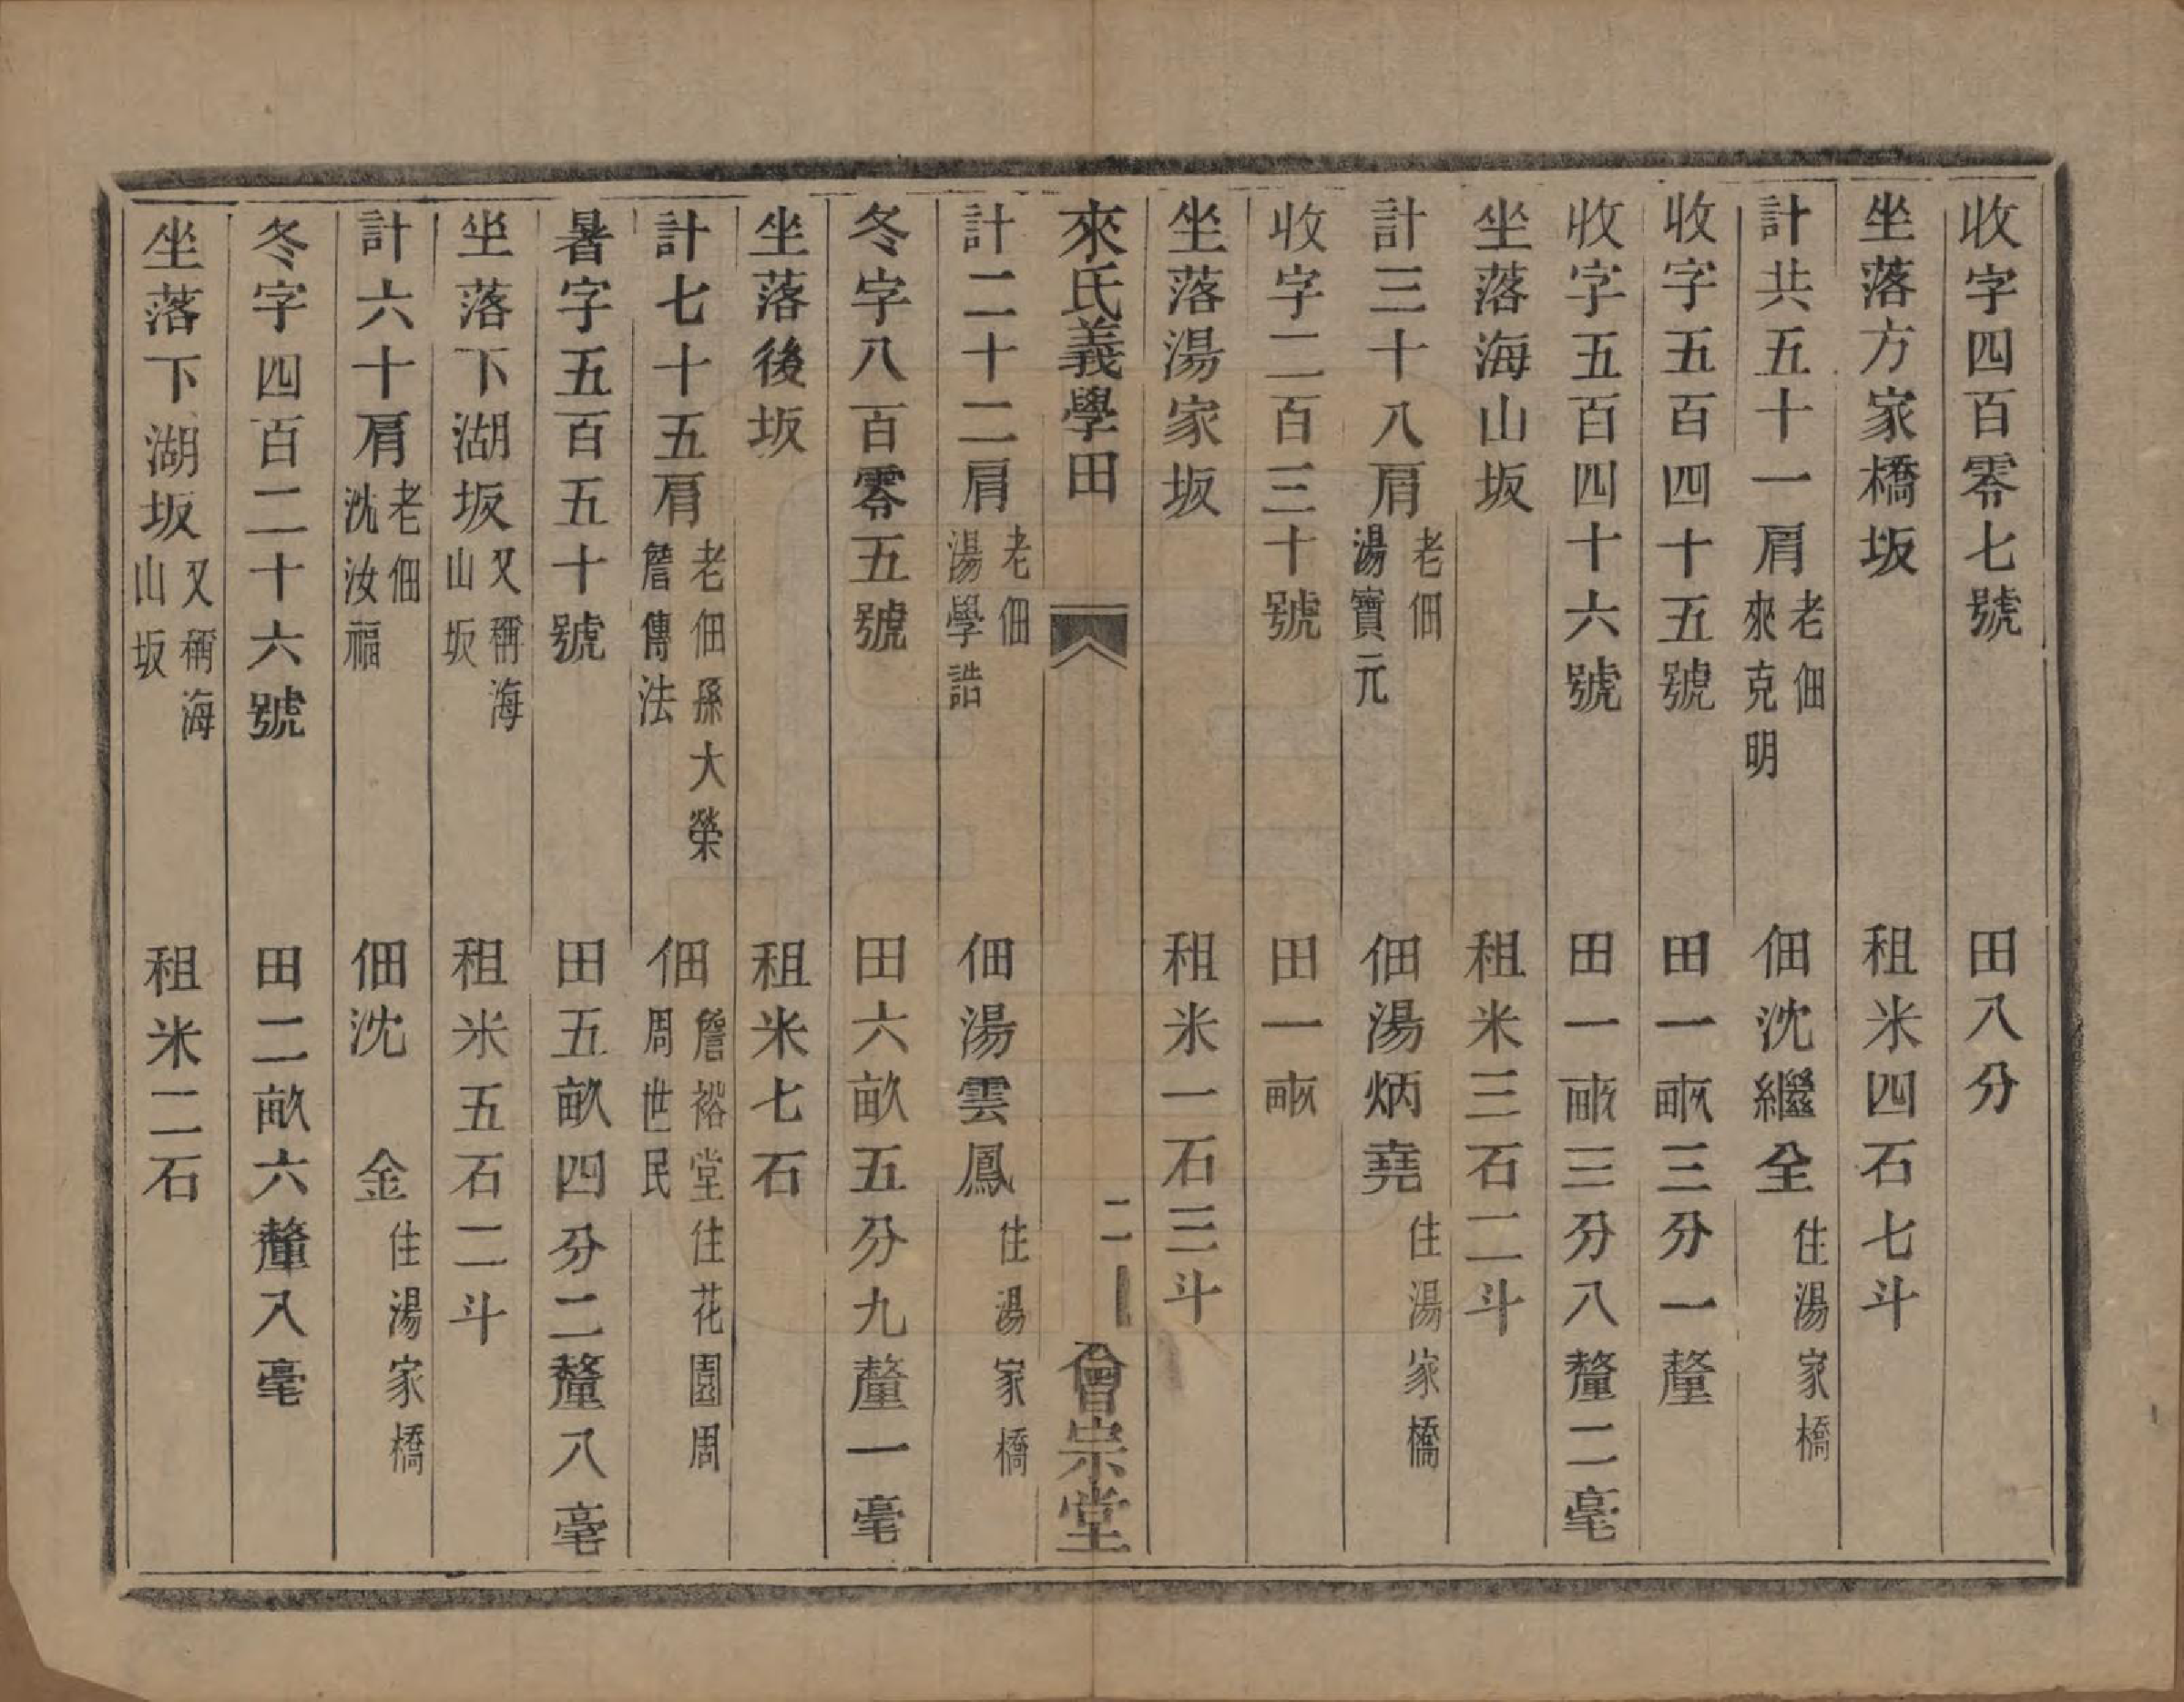 收字四百零七號　田八分
坐落方家橋坂　租米四石七斗
計共五十一肩老佃來克明　佃沈繼全住湯家橋
收字五百四十五號　田一畝三分一釐
收字五百四十六號　田一畝三分八釐二毫
坐落海山坂　租米三石二斗
計三十八肩老佃湯寶元　佃湯炳堯住湯家橋
收字二百三十號　田一畝
坐落湯家坂　租米一石三斗
來氏義學田　二　會崇堂
計二十二肩老佃湯學誥　佃湯雲鳳住湯家橋
冬字八百零五號　田六畝五分九釐一毫
坐落後坂　租米七石
計七十五肩老佃孫大榮詹傳法　佃詹裕堂周世民住花園周
暑字五百五十號　田五畝四分二釐八毫
坐落下湖坂又稱海山坂　租米五石二斗
計六十肩老佃沈汝福　佃沈　金住湯家橋
冬字四百二十六號　田二畝六釐八毫
坐落下湖坂又稱海山坂　租米二石